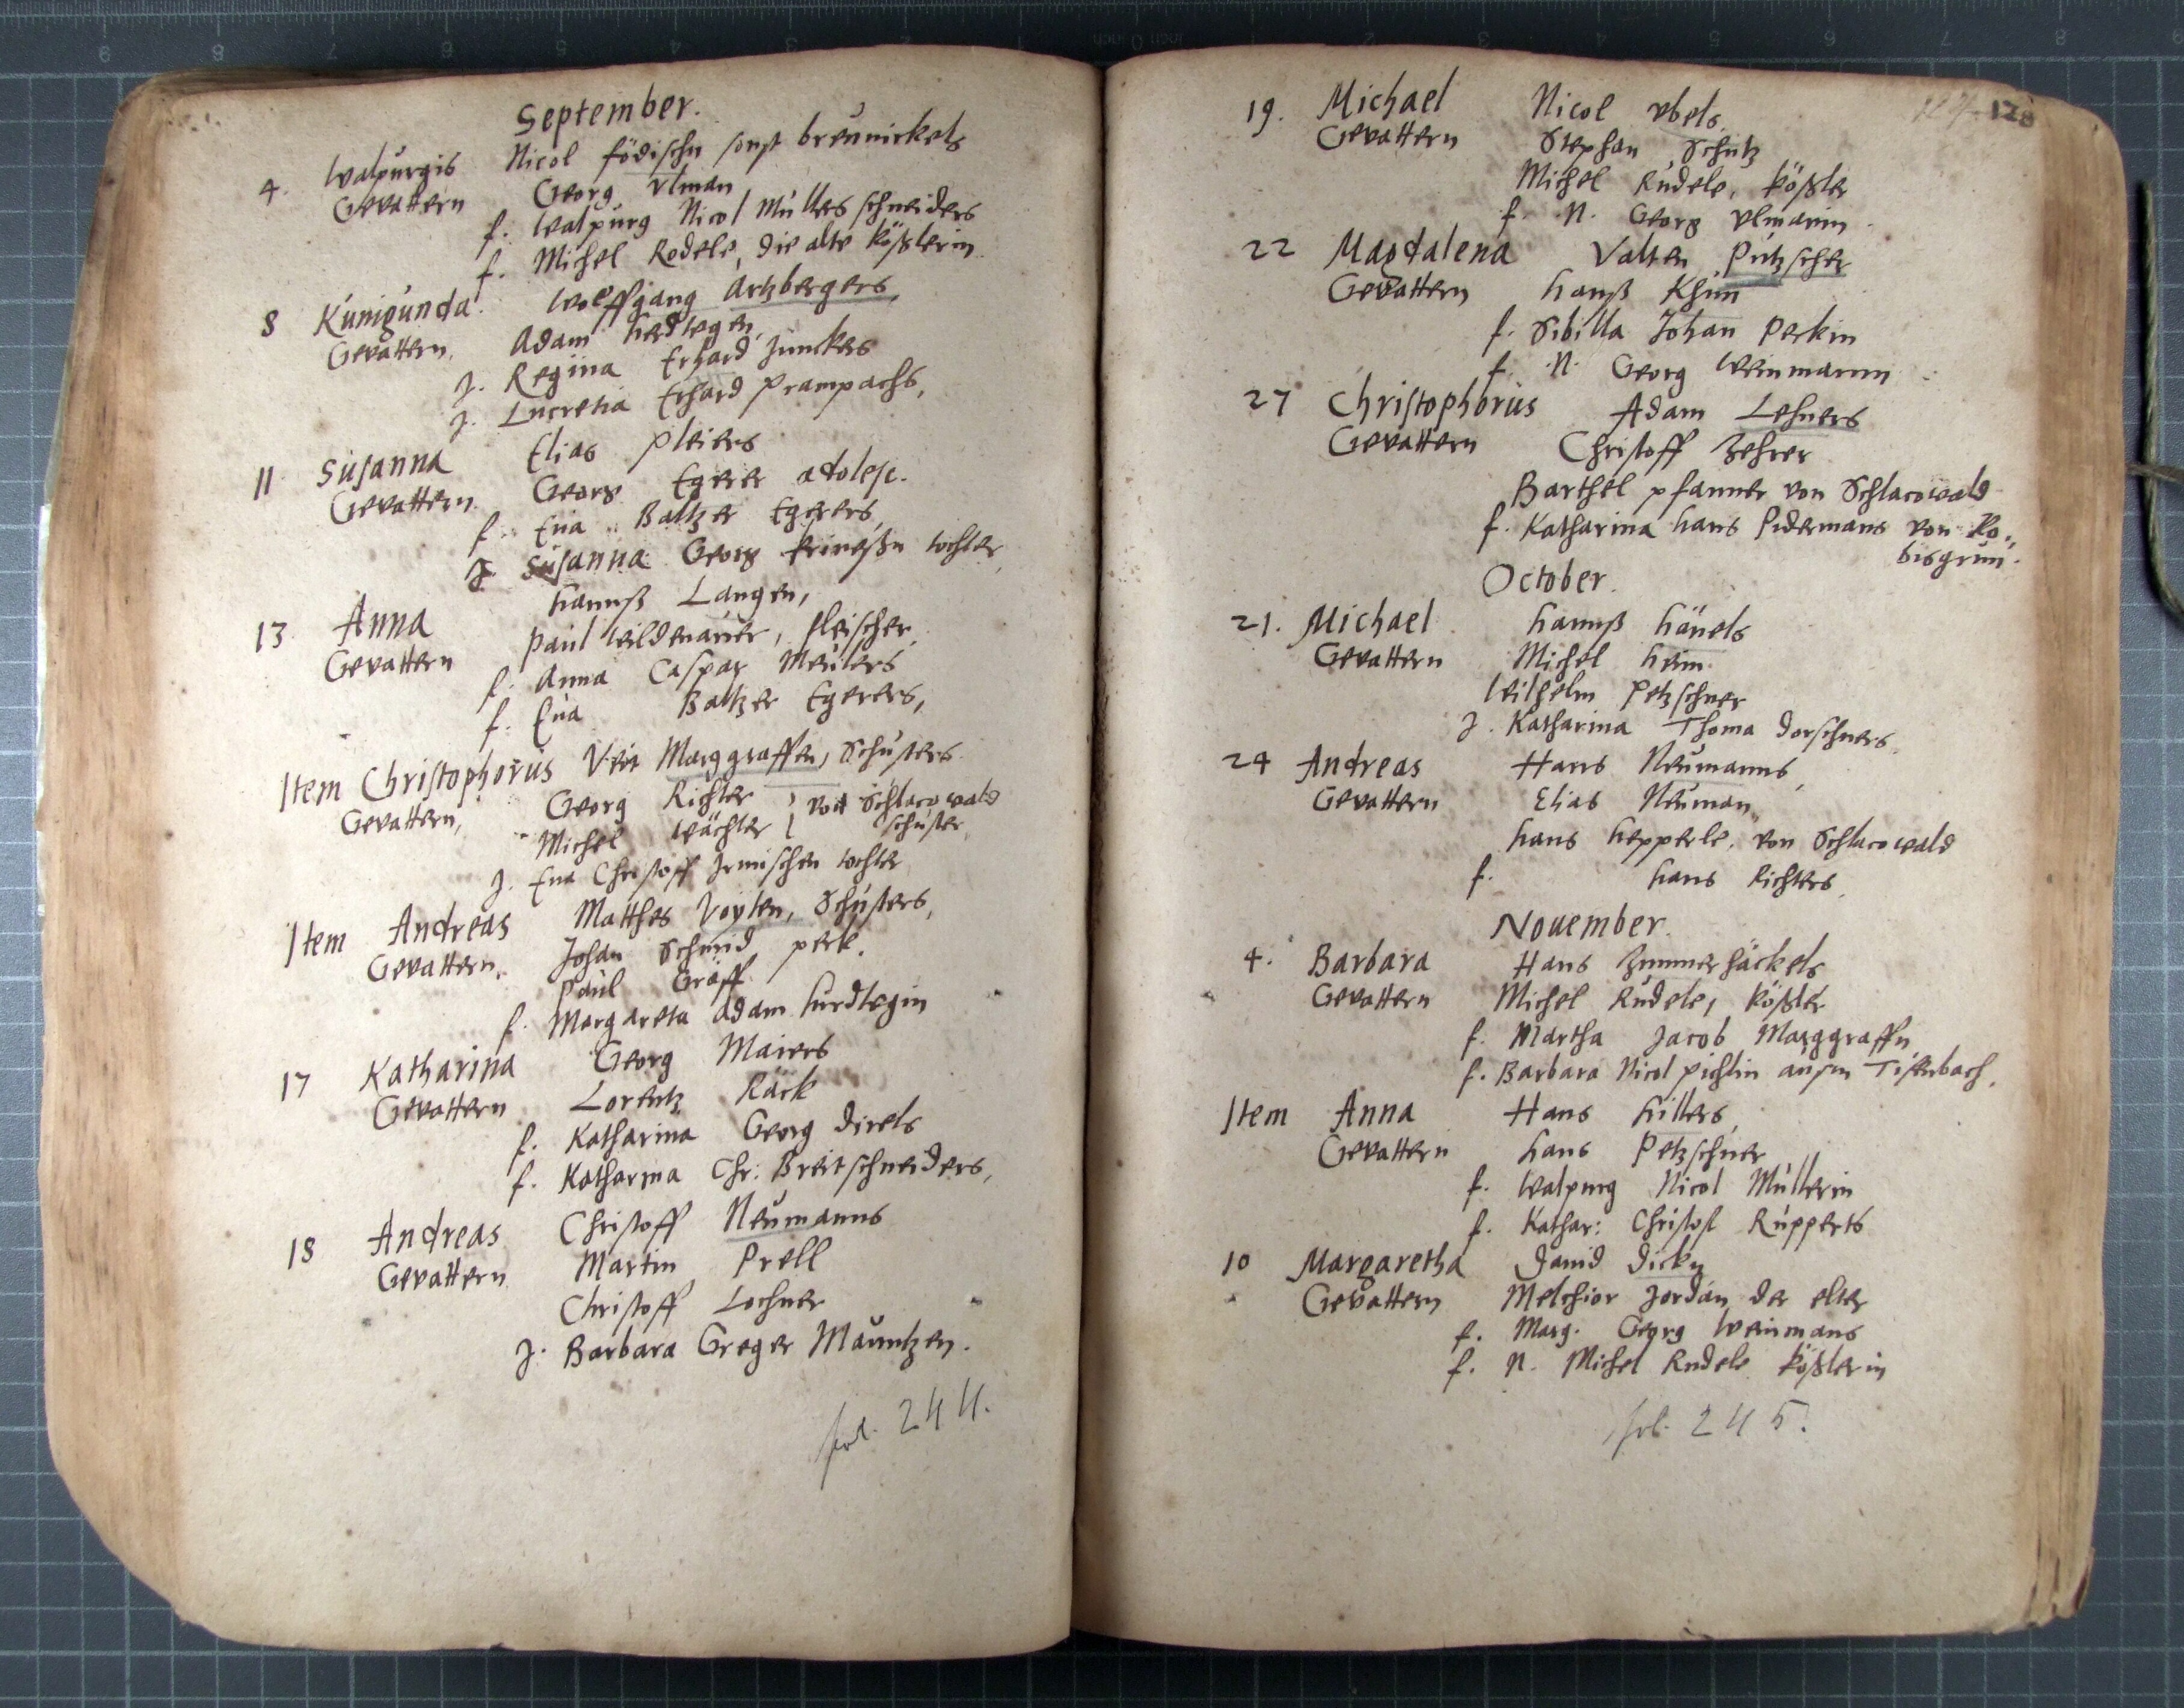 September.
4. Walpurgis Nicol födischn sonst breunickels
Gevattern Georg Vlman
f. Walpurg Nicol Müllers schneiders
f. Michel Rodele, die alte Kößlerin
8 Kunigunda. Wolffgang Artzbergers,
Gevattern, Adam herdtegen,
J. Regina Erhard Junckers
J. Lucretia Erhard Prampachs,
11 Susanna Elias Pleiers
Gevattern. Georg Egerer adolesc.
f. Eua Baltzer Egerers,
J. Susanna Georg tochter,
13 Anna hannß Langen,
Gevattern Paul Wildenauer, fleischer,
f. Anna Caspar Meulers
f. Eua Baltzer Egerers,
Item Christophorus Veit Marggraffen, Schusters
Gevattern, Georg Richter von Schlacowald
Michel Wächter schuster
J. Eua Christoff Irmischen tochter
Item Andreas Matthes Voyten, Schusters,
Gevattern, Johan Schmid perk.
Paul Gräff
f. Margareta Adam hürdtegin
17 Katharina Georg Maiers
Gevattern Lorentz Räck
f. Katharina Georg Direls
f. Katharina Chr: Breitschneiders,
18 Andreas Christoff Neumanns
Gevattern Martin Prell
Christoff Lochner
J. Barbara Greger Mauntzen.
fol. 244.
128
19. Michael Nicol Vbels
Gevattern Stephan Schütz
Michel Rudele, Kößler
f. N. Georg Vlmanin
22 Magdalena Valten Pützscher
Gevattern hanß
f. Sibilla Johan Perkin
f. N. Georg Weinmanin
27 Christophorus Adam Lehners
Gevattern Christoff Zehrer
Barthel pfanner von Schlacowald
f. Katharina hans Pidermans von Ro,,
bisgrün.
October.
21. Michael hannß häuels
Gevattern Michel heim
Wilhelm Petzschner
J. Katharina Thoma Dorschners
24 Andreas Hans Neumanns,
Gevattern Elias Neuman,
hans hepperle, von Schlacowald
f. hans Richters,
Nouember.
4. Barbara Hans Zimmerhäckels
Gevattern Michel Rudele, Kößler
f. Martha Jacob Marggraffn
f. Barbara Nicol pichlin ausm Tifenbach,
Item Anna Hans hillers,
Gevattern hans Petzschner
f. Walpurg Nicol Müllerin
f. Kathar: Christof Rupperts
10 Margaretha Dauid Dickn
Gevattern Melchior Jordan der elter
f. Marg. Georg Weinmans
f. N. Michel Rudele Kößlerin
fol. 245.